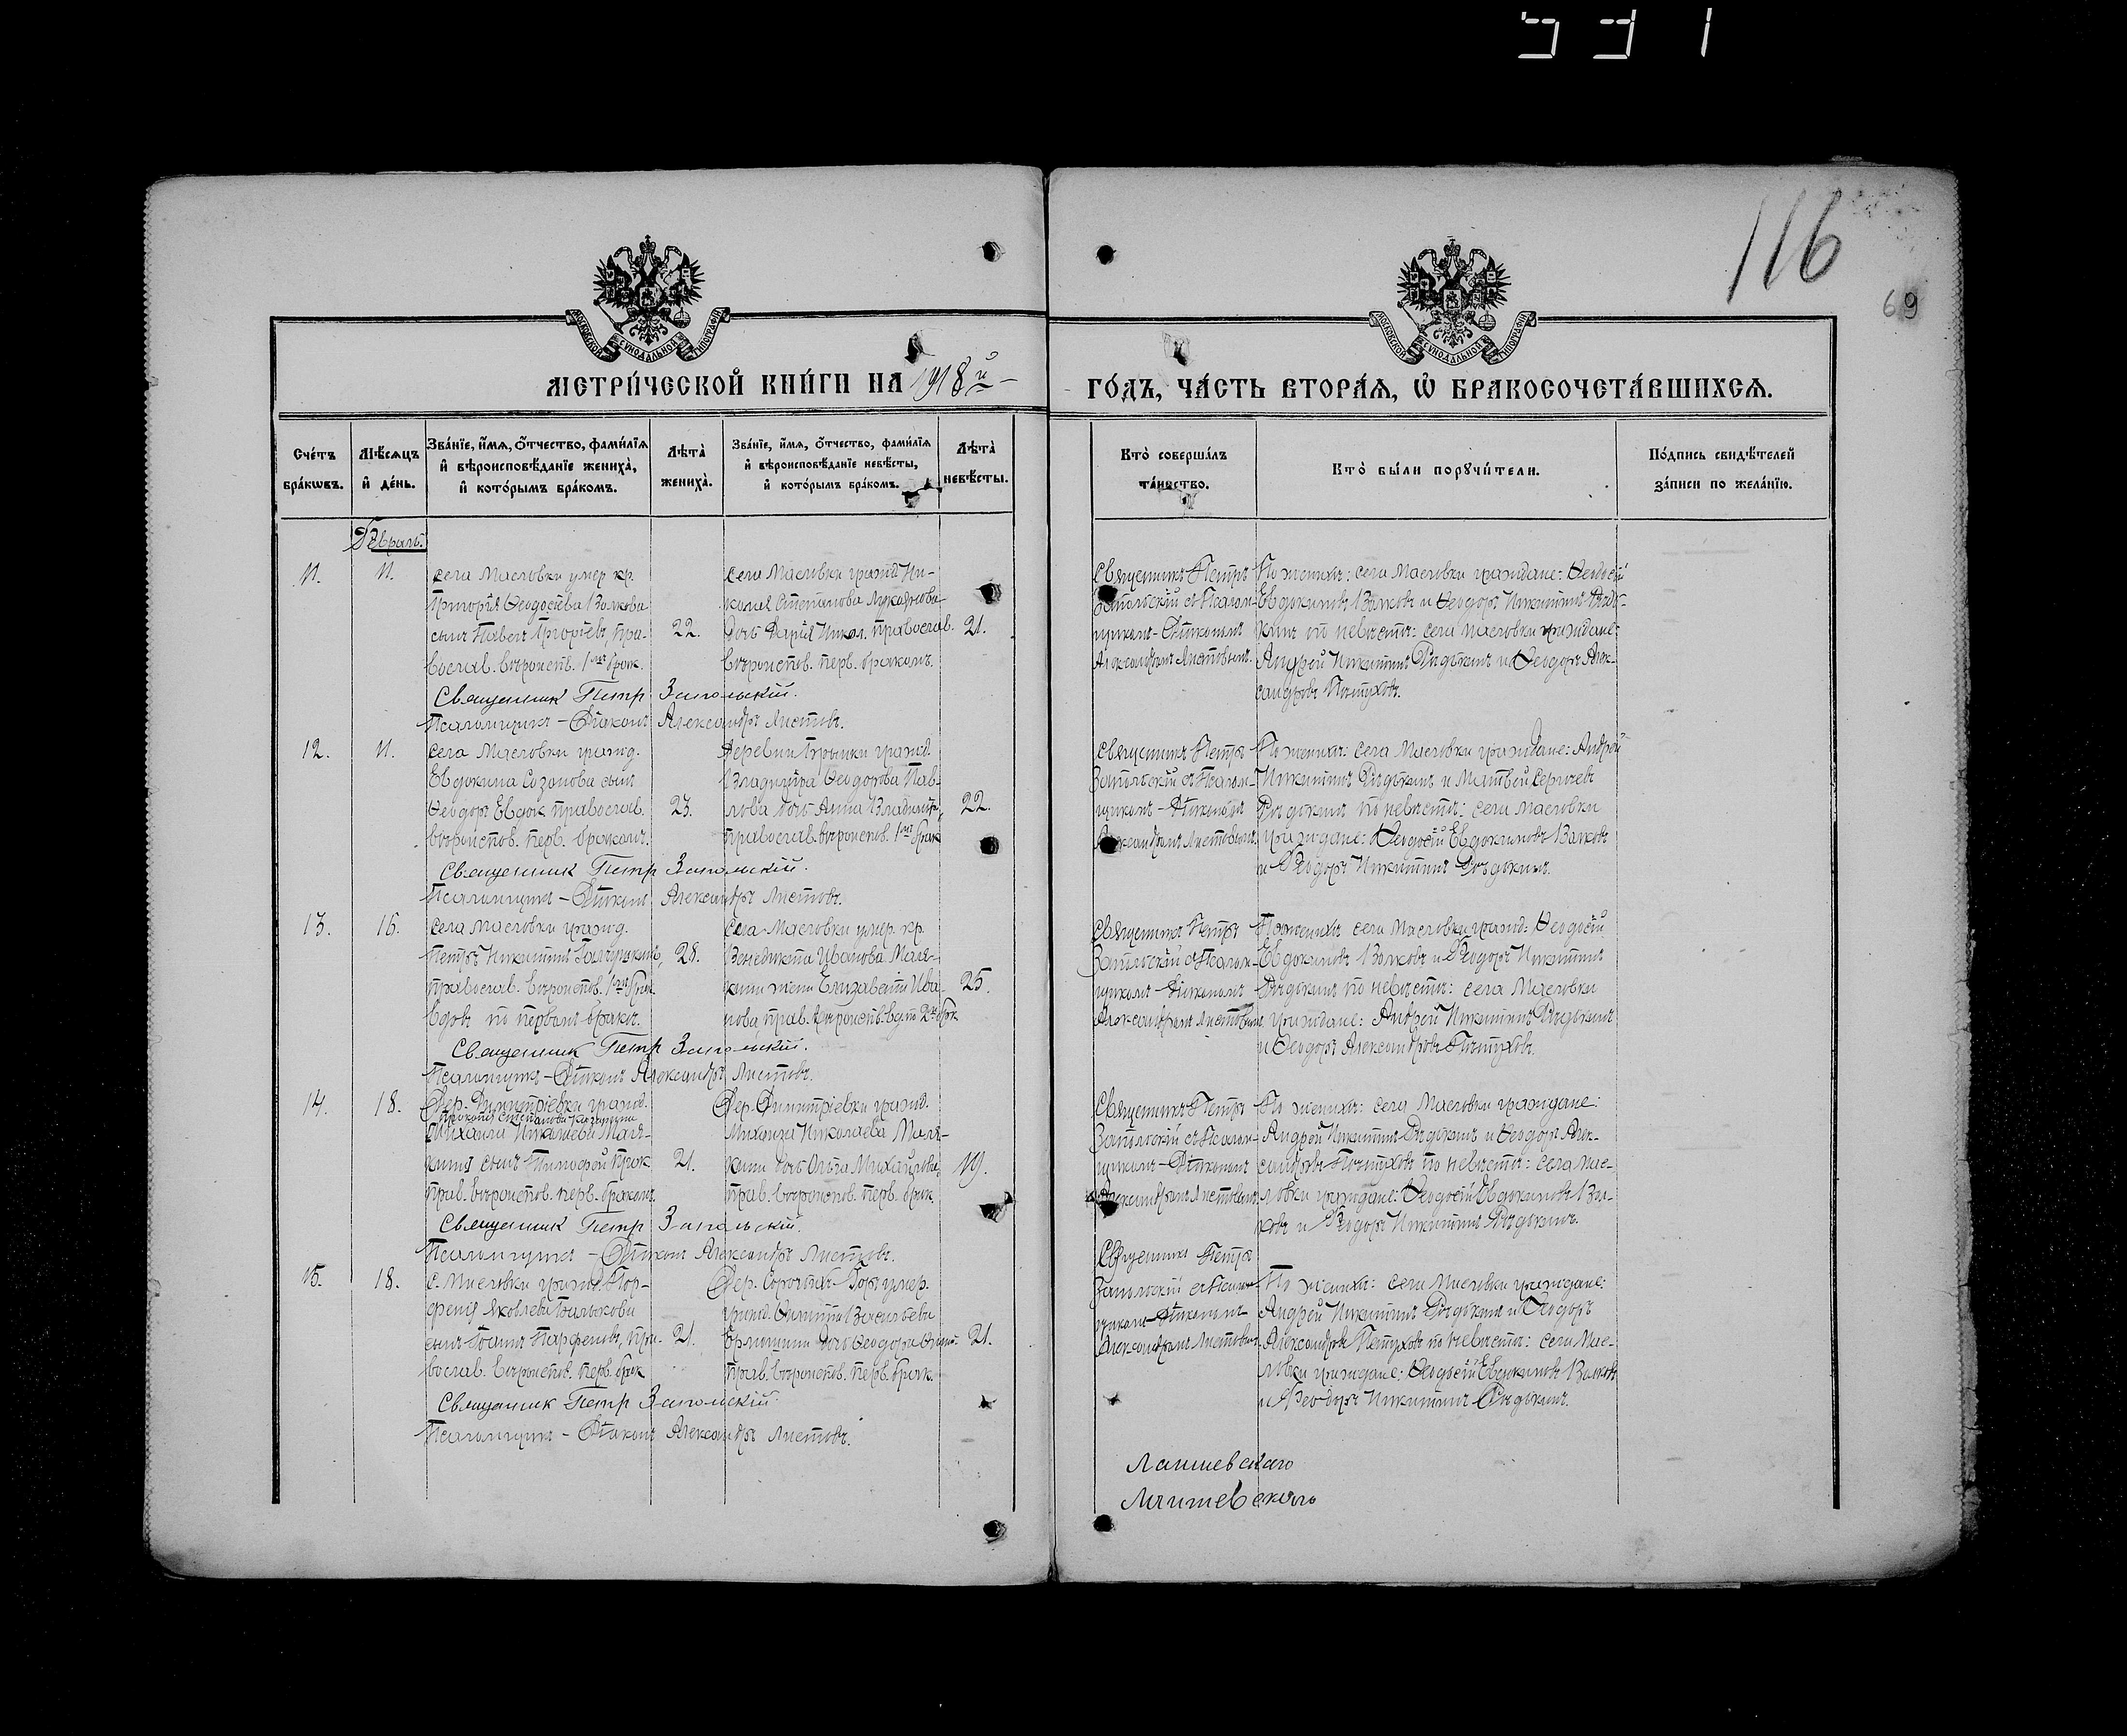 116
69
МОСКОВСКОЙ СУНОДАЛЬНОЙ ТИПОГРАФIИ
МОСКОВСКОЙ СУНОДАЛЬНОЙ ТИПОГРАФIИ
МЕТРИ́ЧЕСКОЙ КНИ́ГИ НА 1918й
ГО́ДЪ, ЧА́СТЬ ВТОРА́Я, Ѡ҆ БРАКОСОЧЕТА́ВШИХСЯ.
Сче́тъ бра́кѡвъ.
Мѣ́сяцъ и҆ де́нь.
Зва́нїе, и҆́мя, ѻ҆́тчество, фами́лїя и҆ вѣроисповѣ́данїе жениха̀, и҆ кото́рымъ бра́комъ.
Лѣта̀ жениха̀.
Зва́нїе, и҆́мя, ѻ҆́тчество, фами́лїя и҆ вѣроисповѣ́данїе невѣ́сты, и҆ кото́рымъ бра́комъ.
Лѣта̀ невѣ́сты.
Кто̀ соверша́лъ та́инство.
Кто̀ бы́ли порꙋчи́тели.
По́дпись свидѣ́телей за́писи по жела́нїю.
Февраль.
11.
11.
села Масловки умер. кр.
Григорія Ѳеодосіева Волкова
сынъ Павелъ Григоріевъ, пра-
вослав. вѣроиспов. 1мъ брак.
22.
села Масловки гражд. Ни-
колая Степанова Лукьянова
дочь Дарія Никол. православ.
вѣроиспов. перв. бракомъ.
21.
Священникъ Петръ
Запольскій съ Псалом-
щикомъ-Діакономъ
Александромъ Листовымъ.
По женихѣ: села Масловки граждане: Ѳеодосій
Евдокимовъ Волковъ и Ѳеодоръ Никитинъ Дѣдь-
кинъ по невѣстѣ: села Масловки граждане:
Андрей Никитинъ Дѣдькинъ и Ѳеодоръ Алек-
сандровъ Пѣтуховъ.
Священник Петр Запольскій.
Псаломщикъ-Діаконъ Александръ Листовъ.
12.
11.
села Масловки гражд.
Евдокима Созонова сынъ
Ѳеодоръ Евдок. православ.
вѣроиспов. перв. бракомъ.
23.
деревни гражд.
Владиміра Ѳеодорова Пав-
лова дочь Анна Владимір.,
православ. вѣроиспов. 1мъ брак.
22.
Священникъ Петръ
Запольскій съ Псалом-
щикомъ-Діакономъ
Александромъ Листовымъ.
По женихѣ: села Масловки граждане: Андрей
Никитинъ Дѣдькинъ и Матвей Сергѣевъ
Дѣдькинъ по невѣстѣ: села Масловки
граждане: Ѳеодосій Евдокимовъ Волковъ
и Ѳеодоръ Никитинъ Дѣдькинъ.
Священник Петр Запольскій.
Псаломщикъ-Діаконъ Александръ Листовъ.
13.
16.
села Масловки гражд.
Петръ Никитинъ
православ. вѣроиспов.
вдовъ по первомъ бракѣ.
28.
села Масловки умер. кр.
Венедикта Иванова Маля-
кина жена Елизавета Ива-
нова, прав. вѣроиспов. 2мъ брак.
25.
Священникъ Петръ
Запольскій съ Псалом-
щикомъ-Діакономъ
Александромъ Листовымъ
По женихѣ: села Масловки гражд. Ѳеодосій
Евдокимовъ Волковъ и Ѳеодоръ Никитинъ
Дѣдькинъ по невѣстѣ: села Масловки
граждане: Андрей Никитинъ Дѣдькинъ
и Ѳеодоръ Александровъ Пѣтуховъ.
Священник Петр Запольскій.
Псаломщикъ-Діаконъ Александръ Листовъ.
14.
18.
Дер. Димитріевки гражд.
Прокопія Степанова
Михаила Николаева Маля-
кина сынъ Тимофей Прок.
прав. вѣроиспов. перв. бракомъ.
21.
Дер. Димитріевки гражд.
Михаила Николаева Маля-
кина дочь Ольга Михайлова,
прав. вѣроиспов. перв. брак.
19.
Священникъ Петръ
Запольскій съ Псалом-
щикомъ-Діакономъ
Александромъ Листовымъ
По женихѣ: села Масловки граждане:
Андрей Никитинъ Дѣдькинъ и Ѳеодоръ Алек-
сандровъ Пѣтуховъ по невѣстѣ: села Мас-
ловки граждане: Ѳеодосій Евдокимовъ Вол-
ковъ и Ѳеодоръ Никитинъ Дѣдькинъ.
Священник Петр Запольскій.
Псаломщикъ-Діаконъ Александръ Листовъ.
15.
18.
с. Масловки гражд. Пар-
фенія Яковлева
сынъ Іоаннъ Парфеновъ, пра-
вослав. вѣроиспов. перв. брак.
21.
Дер. Сорочьихъ-Горъ умер.
гражд. Филиппа Васильева
дочь Ѳеодора
прав. вѣроиспов. перв. брак.
21.
Священникъ Петръ
Запольскій съ Псалом-
щикомъ-Діакономъ
Александромъ Листовымъ
По женихѣ: села Масловки граждане:
Андрей Никитинъ Дѣдькинъ и Ѳеодоръ
Александровъ Пѣтуховъ по невѣстѣ: села Мас-
ловки граждане: Ѳеодосій Евдокимовъ Волковъ
и Ѳеодоръ Никитинъ Дѣдькинъ.
Священник Петр Запольскій.
Псаломщикъ-Діаконъ Александръ Листовъ.
Лаишевскаго
Лаишевскаго